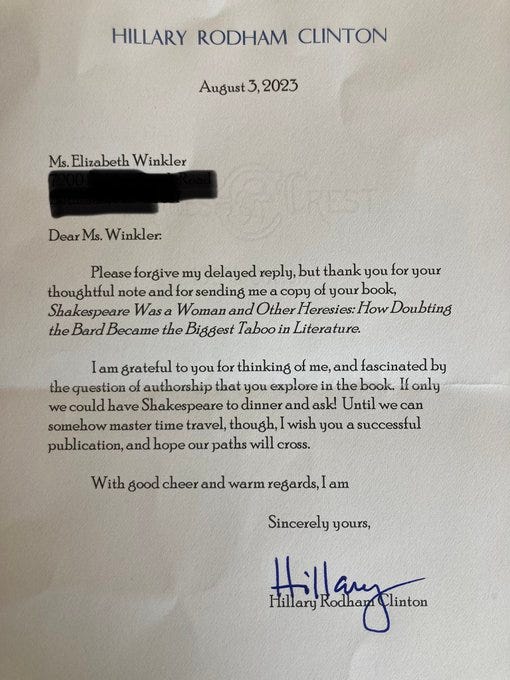 HILLARY RODHAM CLINTON
August 3, 2023
Ms. Elizabeth Winkler
Road
Dear Ms. Winkler:
Please forgive my delayed reply, but thank you for your
thoughtful note and for sending me a copy of your book,
Shakespeare Was a Woman and Other Heresies: How Doubting
the Bard Became the Biggest Taboo in Literature.
I am grateful to you for thinking of me, and fascinated by
the question of authorship that you explore in the book. If only
we could have Shakespeare to dinner and ask! Until we can
somehow master time travel, though, I wish you a successful
publication, and hope our paths will cross.
With good cheer and warm regards, I am
Sincerely yours,
Hillary
Hillary Rodham Clinton